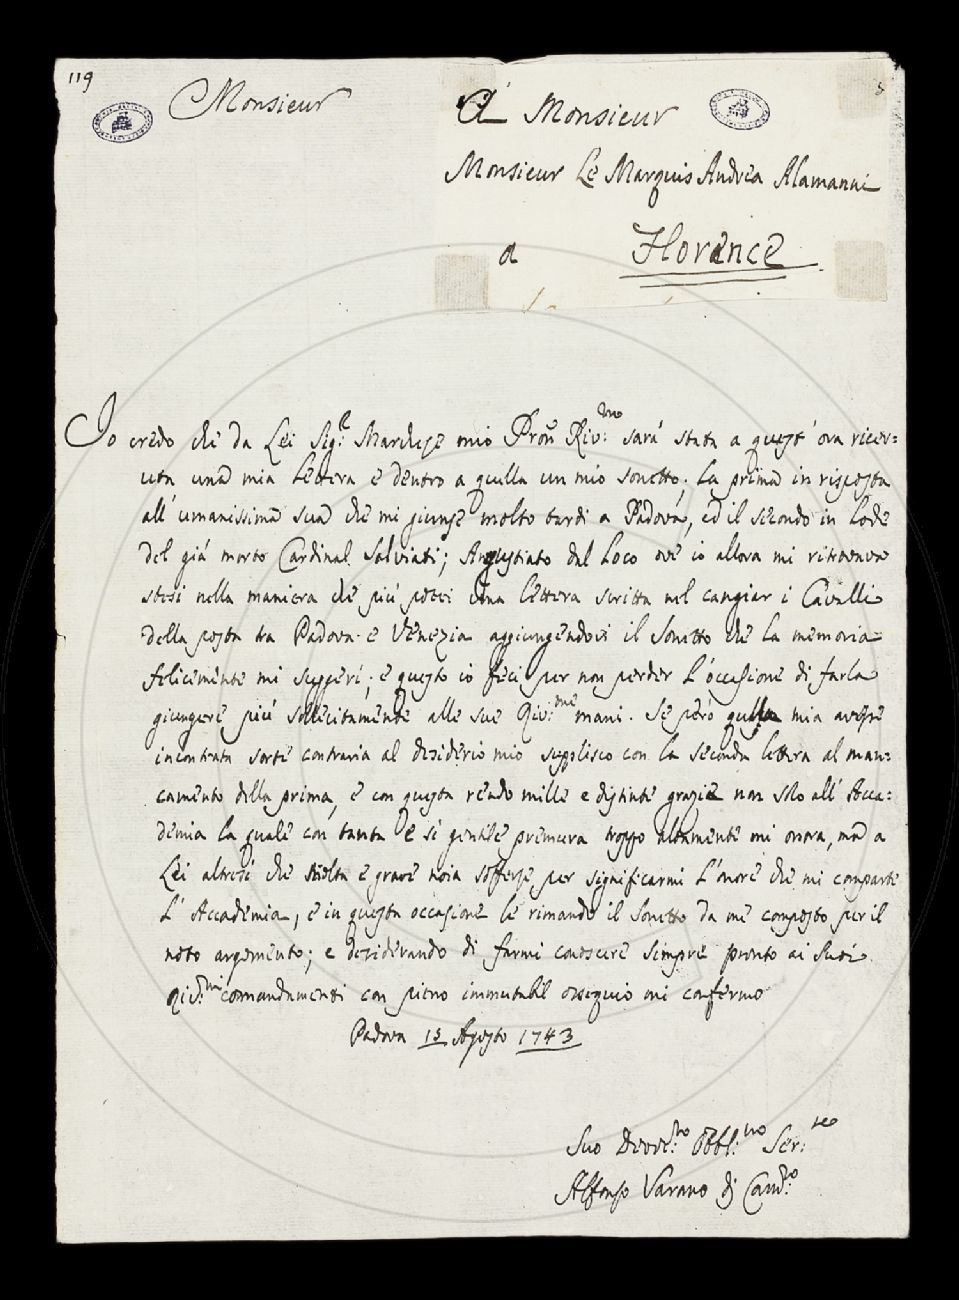 119
Monsieur
A Monsieur
Monsieur Le Marquis Andrea Alamanni
a Florence
Io credo che da Lei Sig.r Marchese mio Pron Riv:mo sarà stata a quest' ora ricev=
uta una mia Lettera e dentro a quella un mio sonetto. La prima in risposta
all' umanissima sua che mi giunse molto tardi a Padova, ed il secondo in Lode
del già morto Cardinal Salviati; Angustiato dal Loco ove io allora mi ritrovava
stesi nella maniera che più potei una Lettera scritta nel cangiar i Cavalli
della posta tra Padova e Venezia aggiungendovi il Sonetto che la memoria
felicemente mi suggerì; e questo io feci per non perder L'occasione di farla
giungere più sollecitamente alle sue Riv:me mani. Se però quella mia avesse
incontrata sorte contraria al desiderio mio supplisco con la seconda lettera al man=
camento della prima, e con questa rendo mille e distinte grazie non solo all' Acca=
demia la quale con tanta e sì gentile premura troppo altamente mi onora, ma a
Lei altresì che molta e grave noia sofferse per significarmi L'onore che mi comparte
L' Accademia, e in questa occasione le rimando il Sonetto da me composto per il
noto argomento; e desiderando di farmi conoscere sempre pronto ai Suoi
Riv:mi comandamenti con pieno immutabil ossequio mi confermo
Padova 15 Agosto 1743
Suo Devot:mo Obbl:mo Ser:re
Alfonso Varano di Cam:o